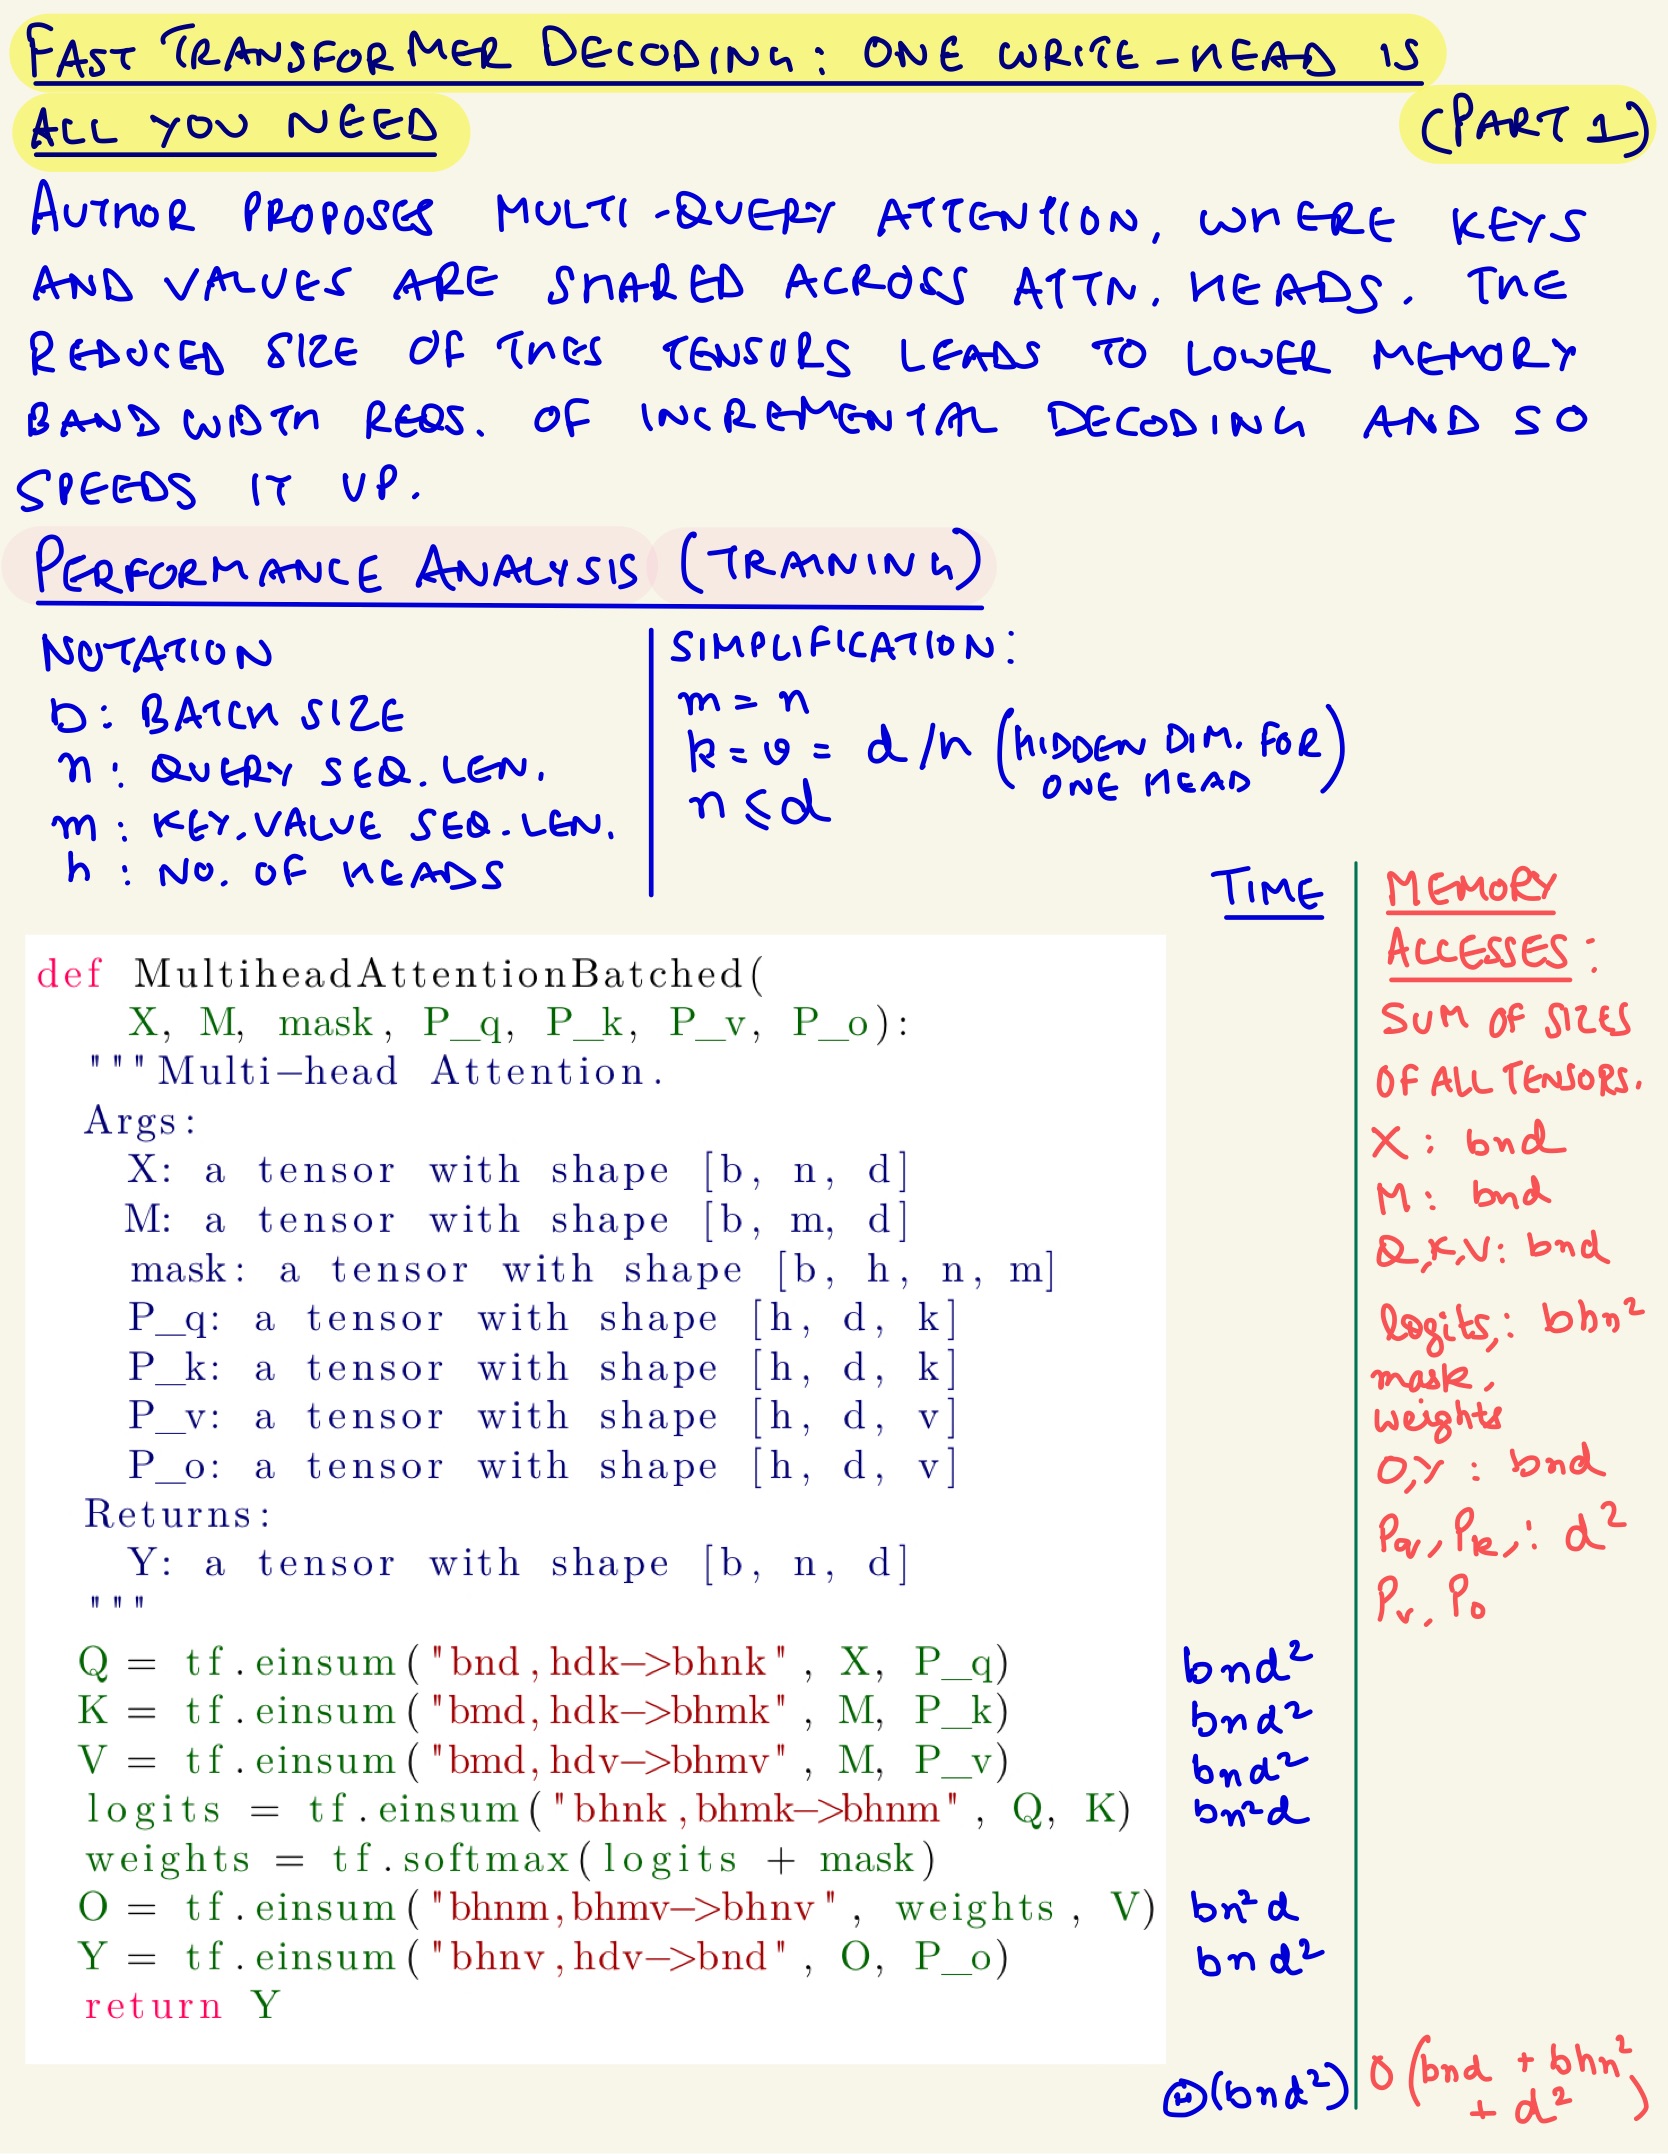 FAST TRANSFORMER DECODING: ONE WRITE-HEAD IS
ALL YOU NEED (PART 1)
AUTHOR PROPOSES MULTI-QUERY ATTENTION, WHERE KEYS
AND VALUES ARE SHARED ACROSS ATTN. HEADS. THE
REDUCED SIZE OF THES TENSORS LEADS TO LOWER MEMORY
BANDWIDTH REQS. OF INCREMENTAL DECODING AND SO
SPEEDS IT UP.
PERFORMANCE ANALYSIS (TRAINING)
NOTATION
b: BATCH SIZE
n: QUERY SEQ. LEN.
m: KEY, VALUE SEQ. LEN.
h: NO. OF HEADS
SIMPLIFICATION:
m = n
k = v = d/h (HIDDEN DIM. FOR
ONE HEAD)
n ≤ d
TIME
def MultiheadAttentionBatched(
X, M, mask, P_q, P_k, P_v, P_o):
"""Multi-head Attention.
Args:
X: a tensor with shape [b, n, d]
M: a tensor with shape [b, m, d]
mask: a tensor with shape [b, h, n, m]
P_q: a tensor with shape [h, d, k]
P_k: a tensor with shape [h, d, k]
P_v: a tensor with shape [h, d, v]
P_o: a tensor with shape [h, d, v]
Returns:
Y: a tensor with shape [b, n, d]
"""
Q = tf.einsum("bnd,hdk->bhnk", X, P_q) bnd²
K = tf.einsum("bmd,hdk->bhmk", M, P_k) bnd²
V = tf.einsum("bmd,hdv->bhmv", M, P_v) bnd²
logits = tf.einsum("bhnk,bhmk->bhnm", Q, K) bn²d
weights = tf.softmax(logits + mask)
O = tf.einsum("bhnm,bhmv->bhnv", weights, V) bn²d
Y = tf.einsum("bhnv,hdv->bnd", O, P_o) bnd²
return Y
Θ(bnd²)
MEMORY
ACCESSES:
SUM OF SIZES
OF ALL TENSORS.
X: bnd
M: bnd
Q,K,V: bnd
logits,: bhn²
mask,
weights
O,Y: bnd
Pq, Pk,: d²
Pv, Po
O(bnd + bhn²
+ d²)